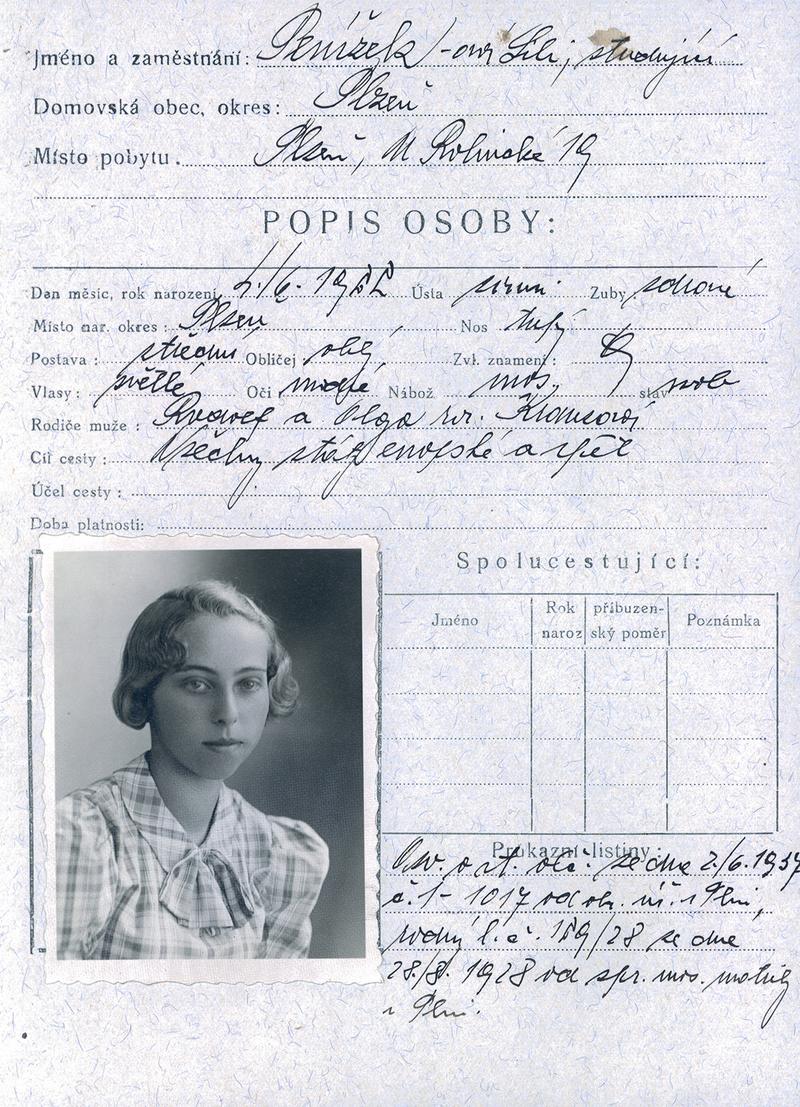 Jméno a zaměstnání: Penížek -ová Lili, studující
Domovská obec, okres: Plzeň
Místo pobytu. Plzeň, 19
POPIS OSOBY:
Den měsíc, rok narození 19 Ústa Zuby zdravé
Místo nar. okres: Plzeň Nos tupý
Postava: střední Obličej: oblý Zvl. znamení:
Vlasy: světlé Oči modré Nábož. mos. stav svob
Rodiče muže: a Olga roz. Klausová
Cíl cesty: Všechny státy evropské a zpět
Účel cesty:
Doba platnosti:
Spolucestující:
Jméno Rok naroz příbuzenský poměr Poznámka
Průkazní listiny:
Osv. o st. obč. ze dne 2/6. 1937
č. 1- 1017 od ok. úř. v Plzni,
rodný l. č. /28 ze dne
28./8. 1928 od spr. mos. matrik
v Plzni.